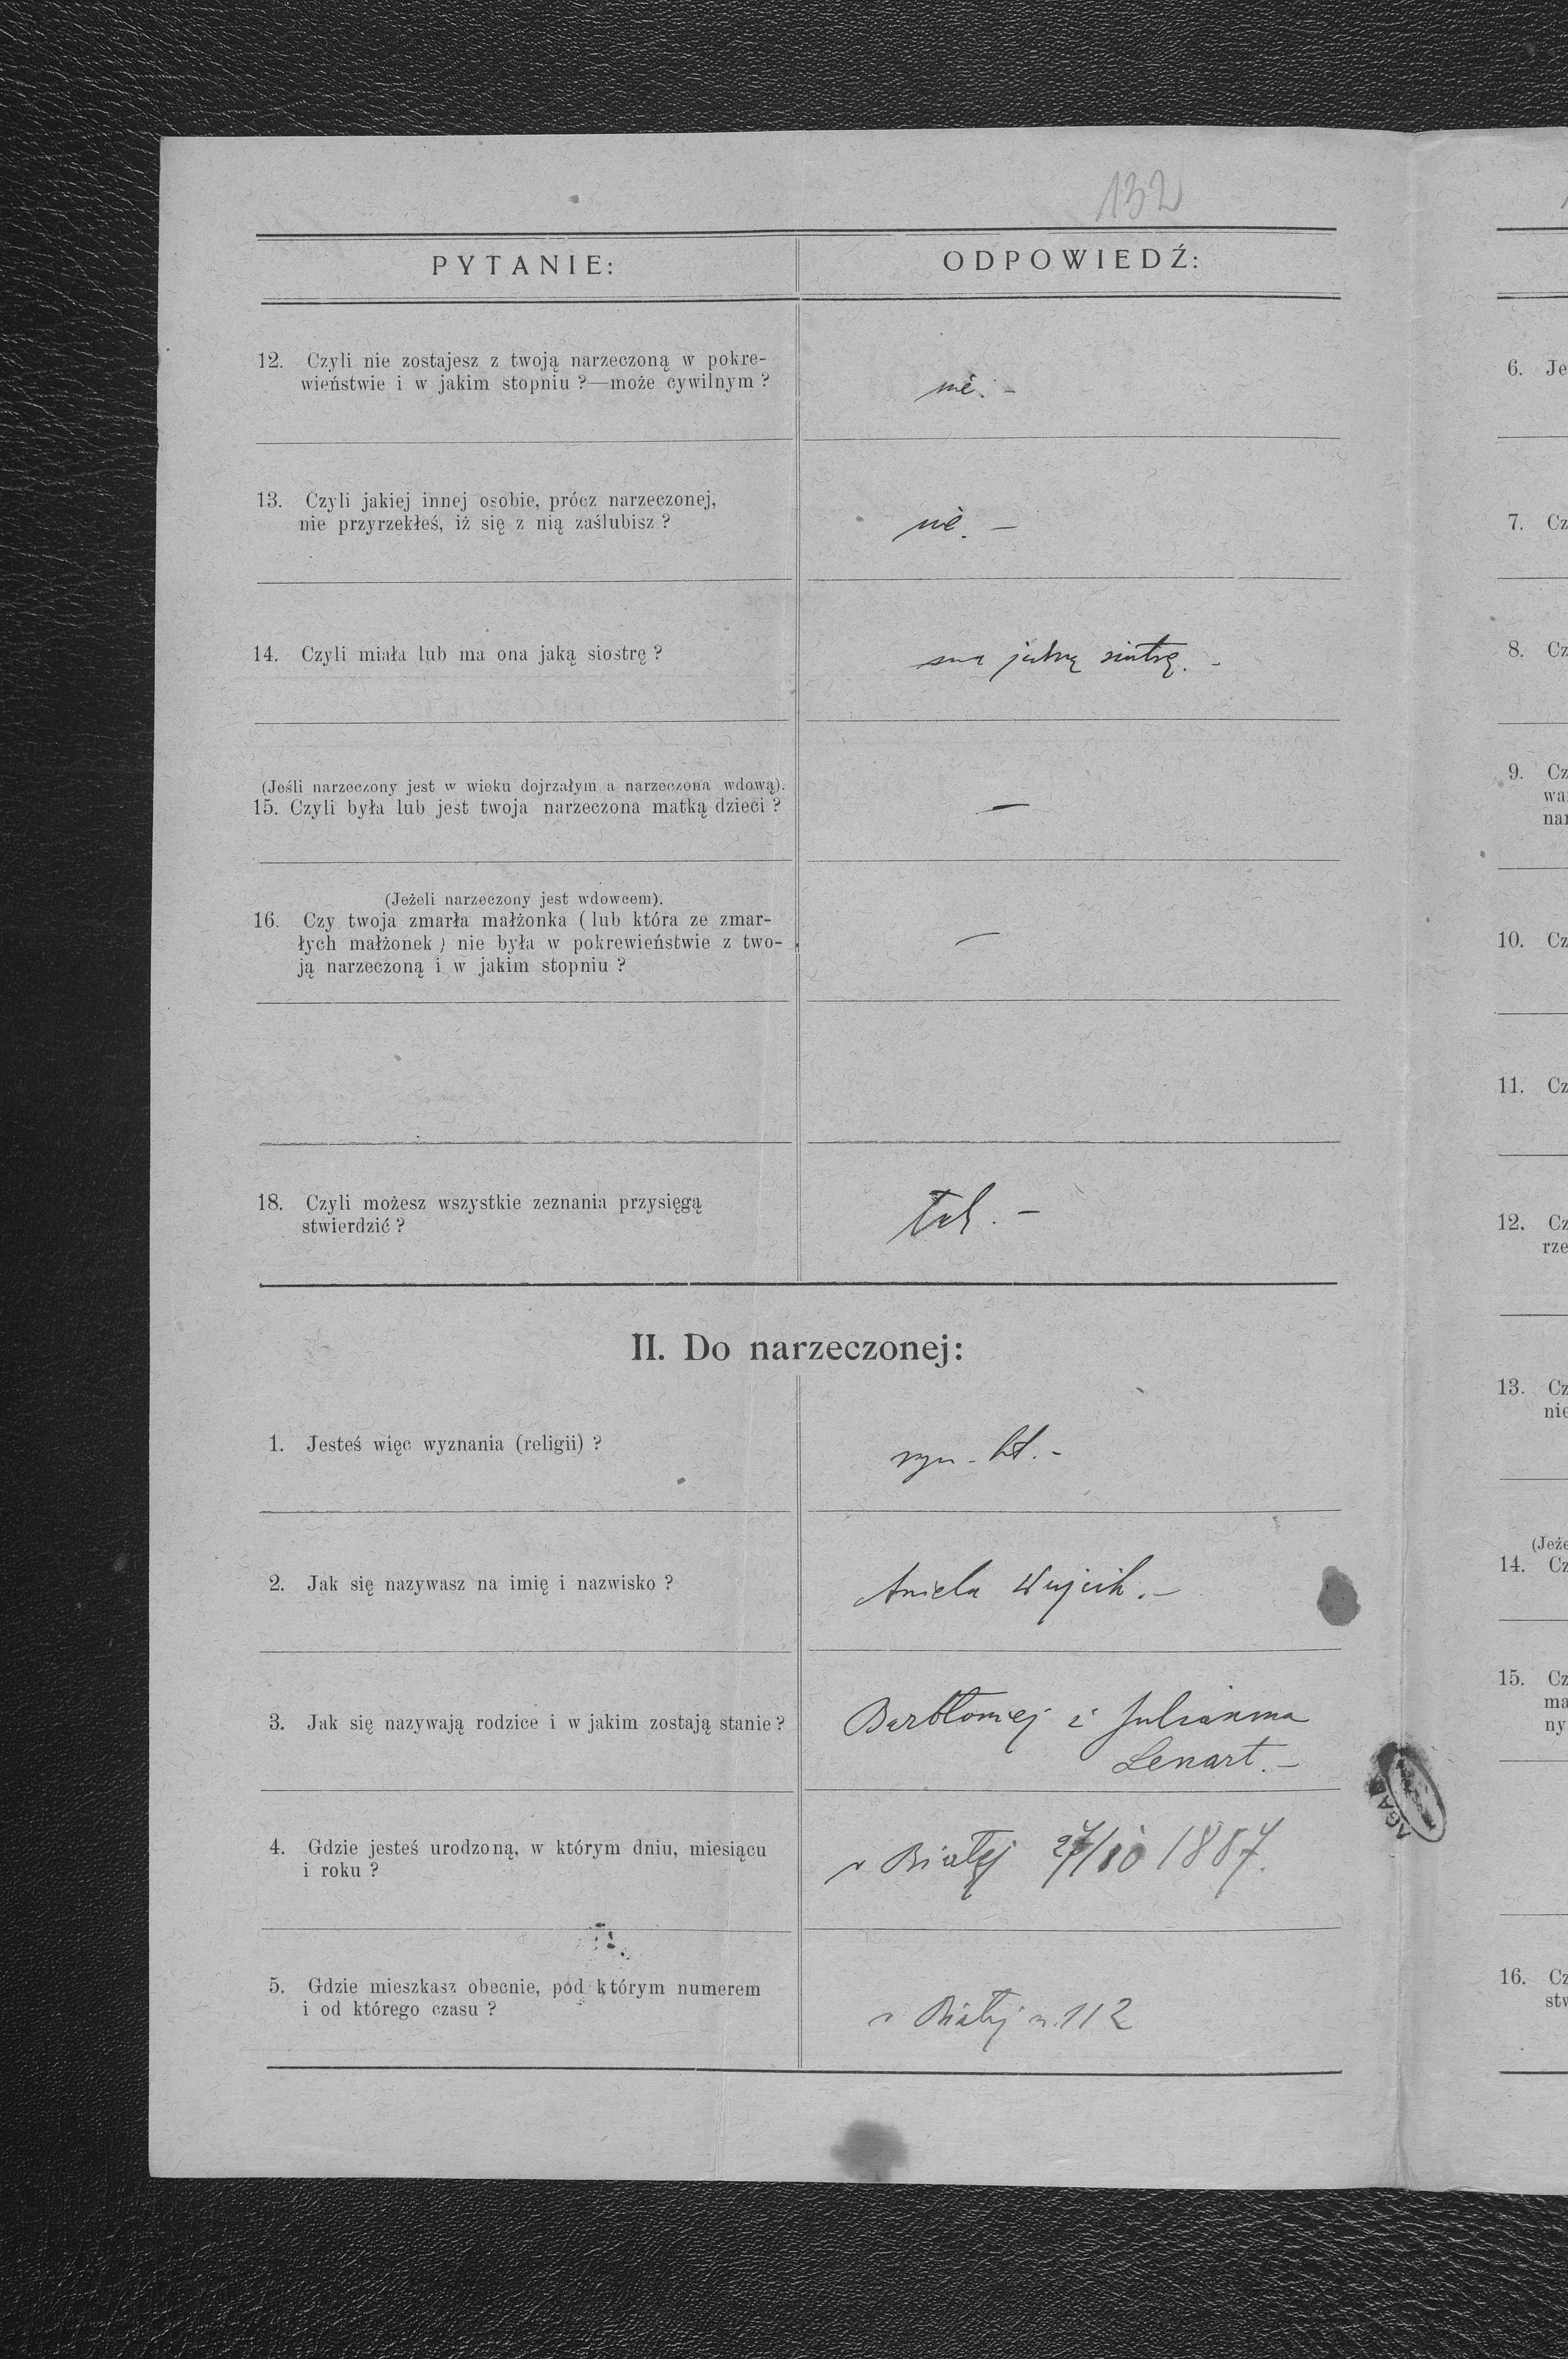 132
PYTANIE:
ODPOWIEDŹ:
12. Czyli nie zostajesz z twoją narzeczoną w pokre-
wieństwie i w jakim stopniu ?—może cywilnym ?
nie. –
13. Czyli jakiej innej osobie, prócz narzeczonej,
nie przyrzekłeś, iż się z nią zaślubisz ?
nie. –
14. Czyli miała lub ma ona jaką siostrę ?
ma jedną siostrę. –
(Jeśli narzeczony jest w wieku dojrzałym a narzeczona wdową).
15. Czyli była lub jest twoja narzeczona matką dzieci ?
—
(Jeżeli narzeczony jest wdowcem).
16. Czy twoja zmarła małżonka (lub która ze zmar-
łych małżonek) nie była w pokrewieństwie z two-
ją narzeczoną i w jakim stopniu ?
—
18. Czyli możesz wszystkie zeznania przysięgą
stwierdzić ?
tak. –
II. Do narzeczonej:
1. Jesteś więc wyznania (religii) ?
rzym. kat. –
2. Jak się nazywasz na imię i nazwisko ?
Aniela Wujcik. –
3. Jak się nazywają rodzice i w jakim zostają stanie ?
Bartłomiej i Julianna
Lenart. –
4. Gdzie jesteś urodzoną, w którym dniu, miesiącu
i roku ?
w Białej 27/10 1887.
5. Gdzie mieszkasz obecnie, pod którym numerem
i od którego czasu ?
w Białej n. 112
AGAD
6. Je
7. Cz
8. Cz
9. Cz
wa
nar
10. Cz
11. Cz
12. Cz
rze
13. Cz
nie
(Jeże
14. Cz
15. Cz
ma
ny
16. Cz
stw